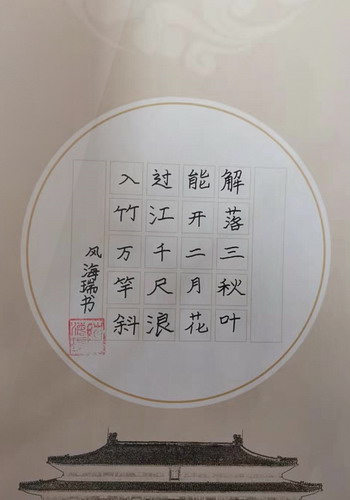 解落三秋叶
能开二月花
过江千尺浪
入竹万竿斜
风海瑞书